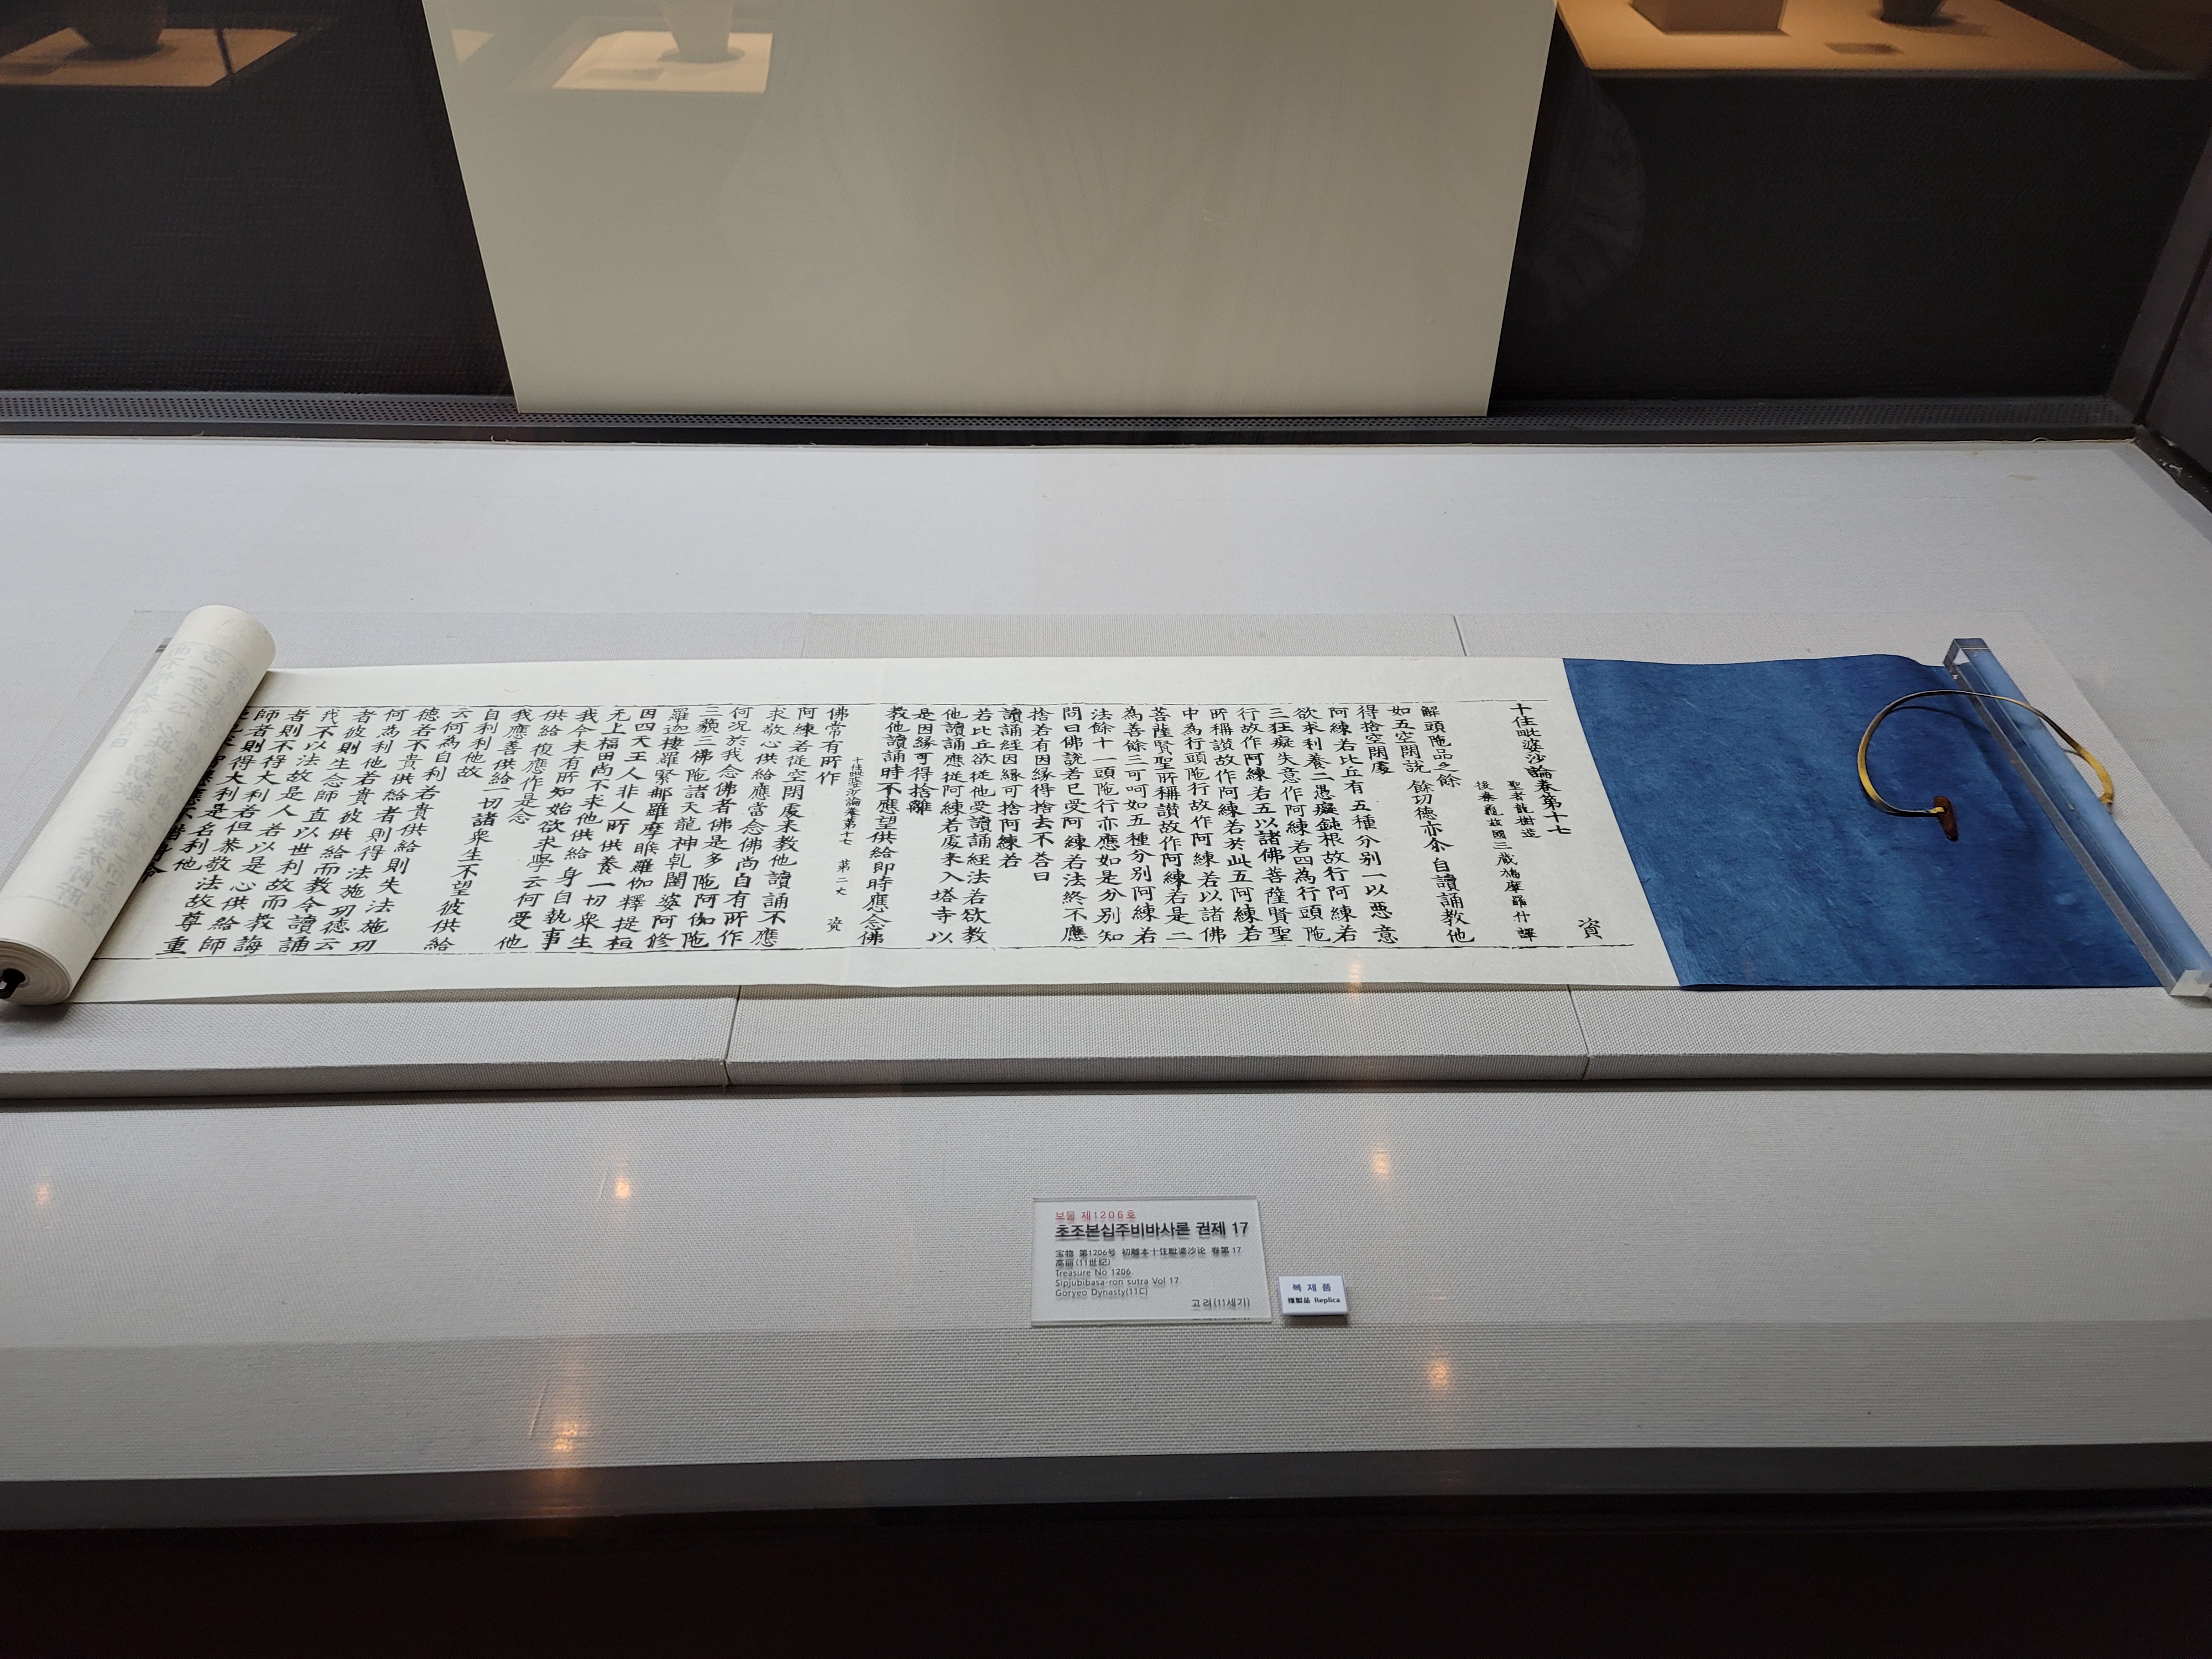 資
十住毗婆沙論卷第十七
聖者龍樹造
後秦龜茲國三藏鳩摩羅什譯
解頭陁品之餘
如五空閑說 餘功德亦尒 自讀誦教他
得捨空閑處
阿練若比丘有五種分别一以惡意
欲求利養二愚癡鈍根故行阿練若
三狂癡失意作阿練若四為行頭陁
行故作阿練若五以諸佛菩薩賢聖
所稱讃故作阿練若於此五阿練若
中為行頭陁行故作阿練若以諸佛
菩薩賢聖所稱讃故作阿練若是二
為善餘三可呵如五種分别阿練若
法餘十一頭陁行亦應如是分别知
問曰佛說若已受阿練若法終不應
捨若有因緣得捨去不荅曰
讀誦經因緣可捨阿練若
若比丘欲從他受讀誦經法若欲教
他讀誦應從阿練若處来入塔寺以
是因緣可得捨離
教他讀誦時不應望供給即時應念佛
十住毗婆沙論卷第十七 第二丈 資
佛常有所作
阿練若從空閑處来教他讀誦不應
求敬心供給應當念佛尚自有所作
何況於我念佛者佛是多陁阿伽陁
三藐三佛陁諸天龍神乹闥婆阿修
羅迦樓羅緊那羅摩睺羅伽釋提桓
因四天王人非人所供養一切衆生
无上福田尚不求他供給身自執事
我今未有所知始欲求學云何受他
供給復應作是念
我應善供給一切諸衆生不望彼供給
自利利他故
云何為自利若貴供給則失法施功
德若不貴供給者則得法施功德云
何為利他者若貴彼供給而教令讀誦
者彼則生念師直以世利故而教誨
我不以法故是人者以是心供給師
者則不得大利若但恭敬法故尊重
師者則得大利是名利他
보물 제1206호
초조본십주비바사론 권제 17
宝物 第1206号 初雕本十住毗婆沙论 卷第17
高丽(11世纪)
Treasure No 1206
Sipjubibasa-ron sutra Vol 17
Goryeo Dynasty(11C)
고려(11세기)
복제품
複製品 Replica